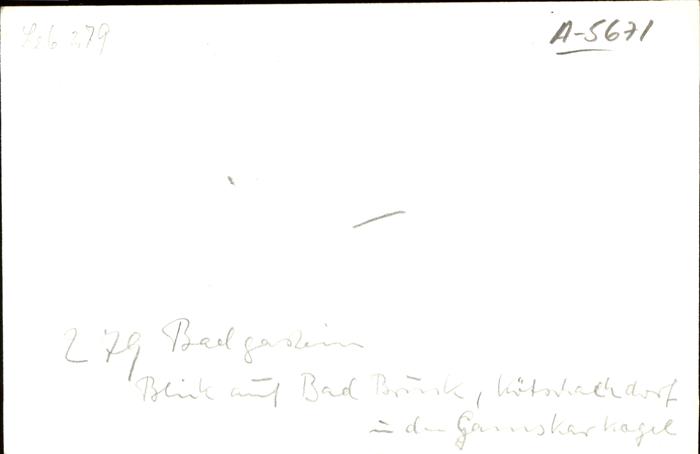 279
A-5671
279 Badgastein
Blick auf Bad Bruck, Kötschachdorf
u den Gamskarkogel